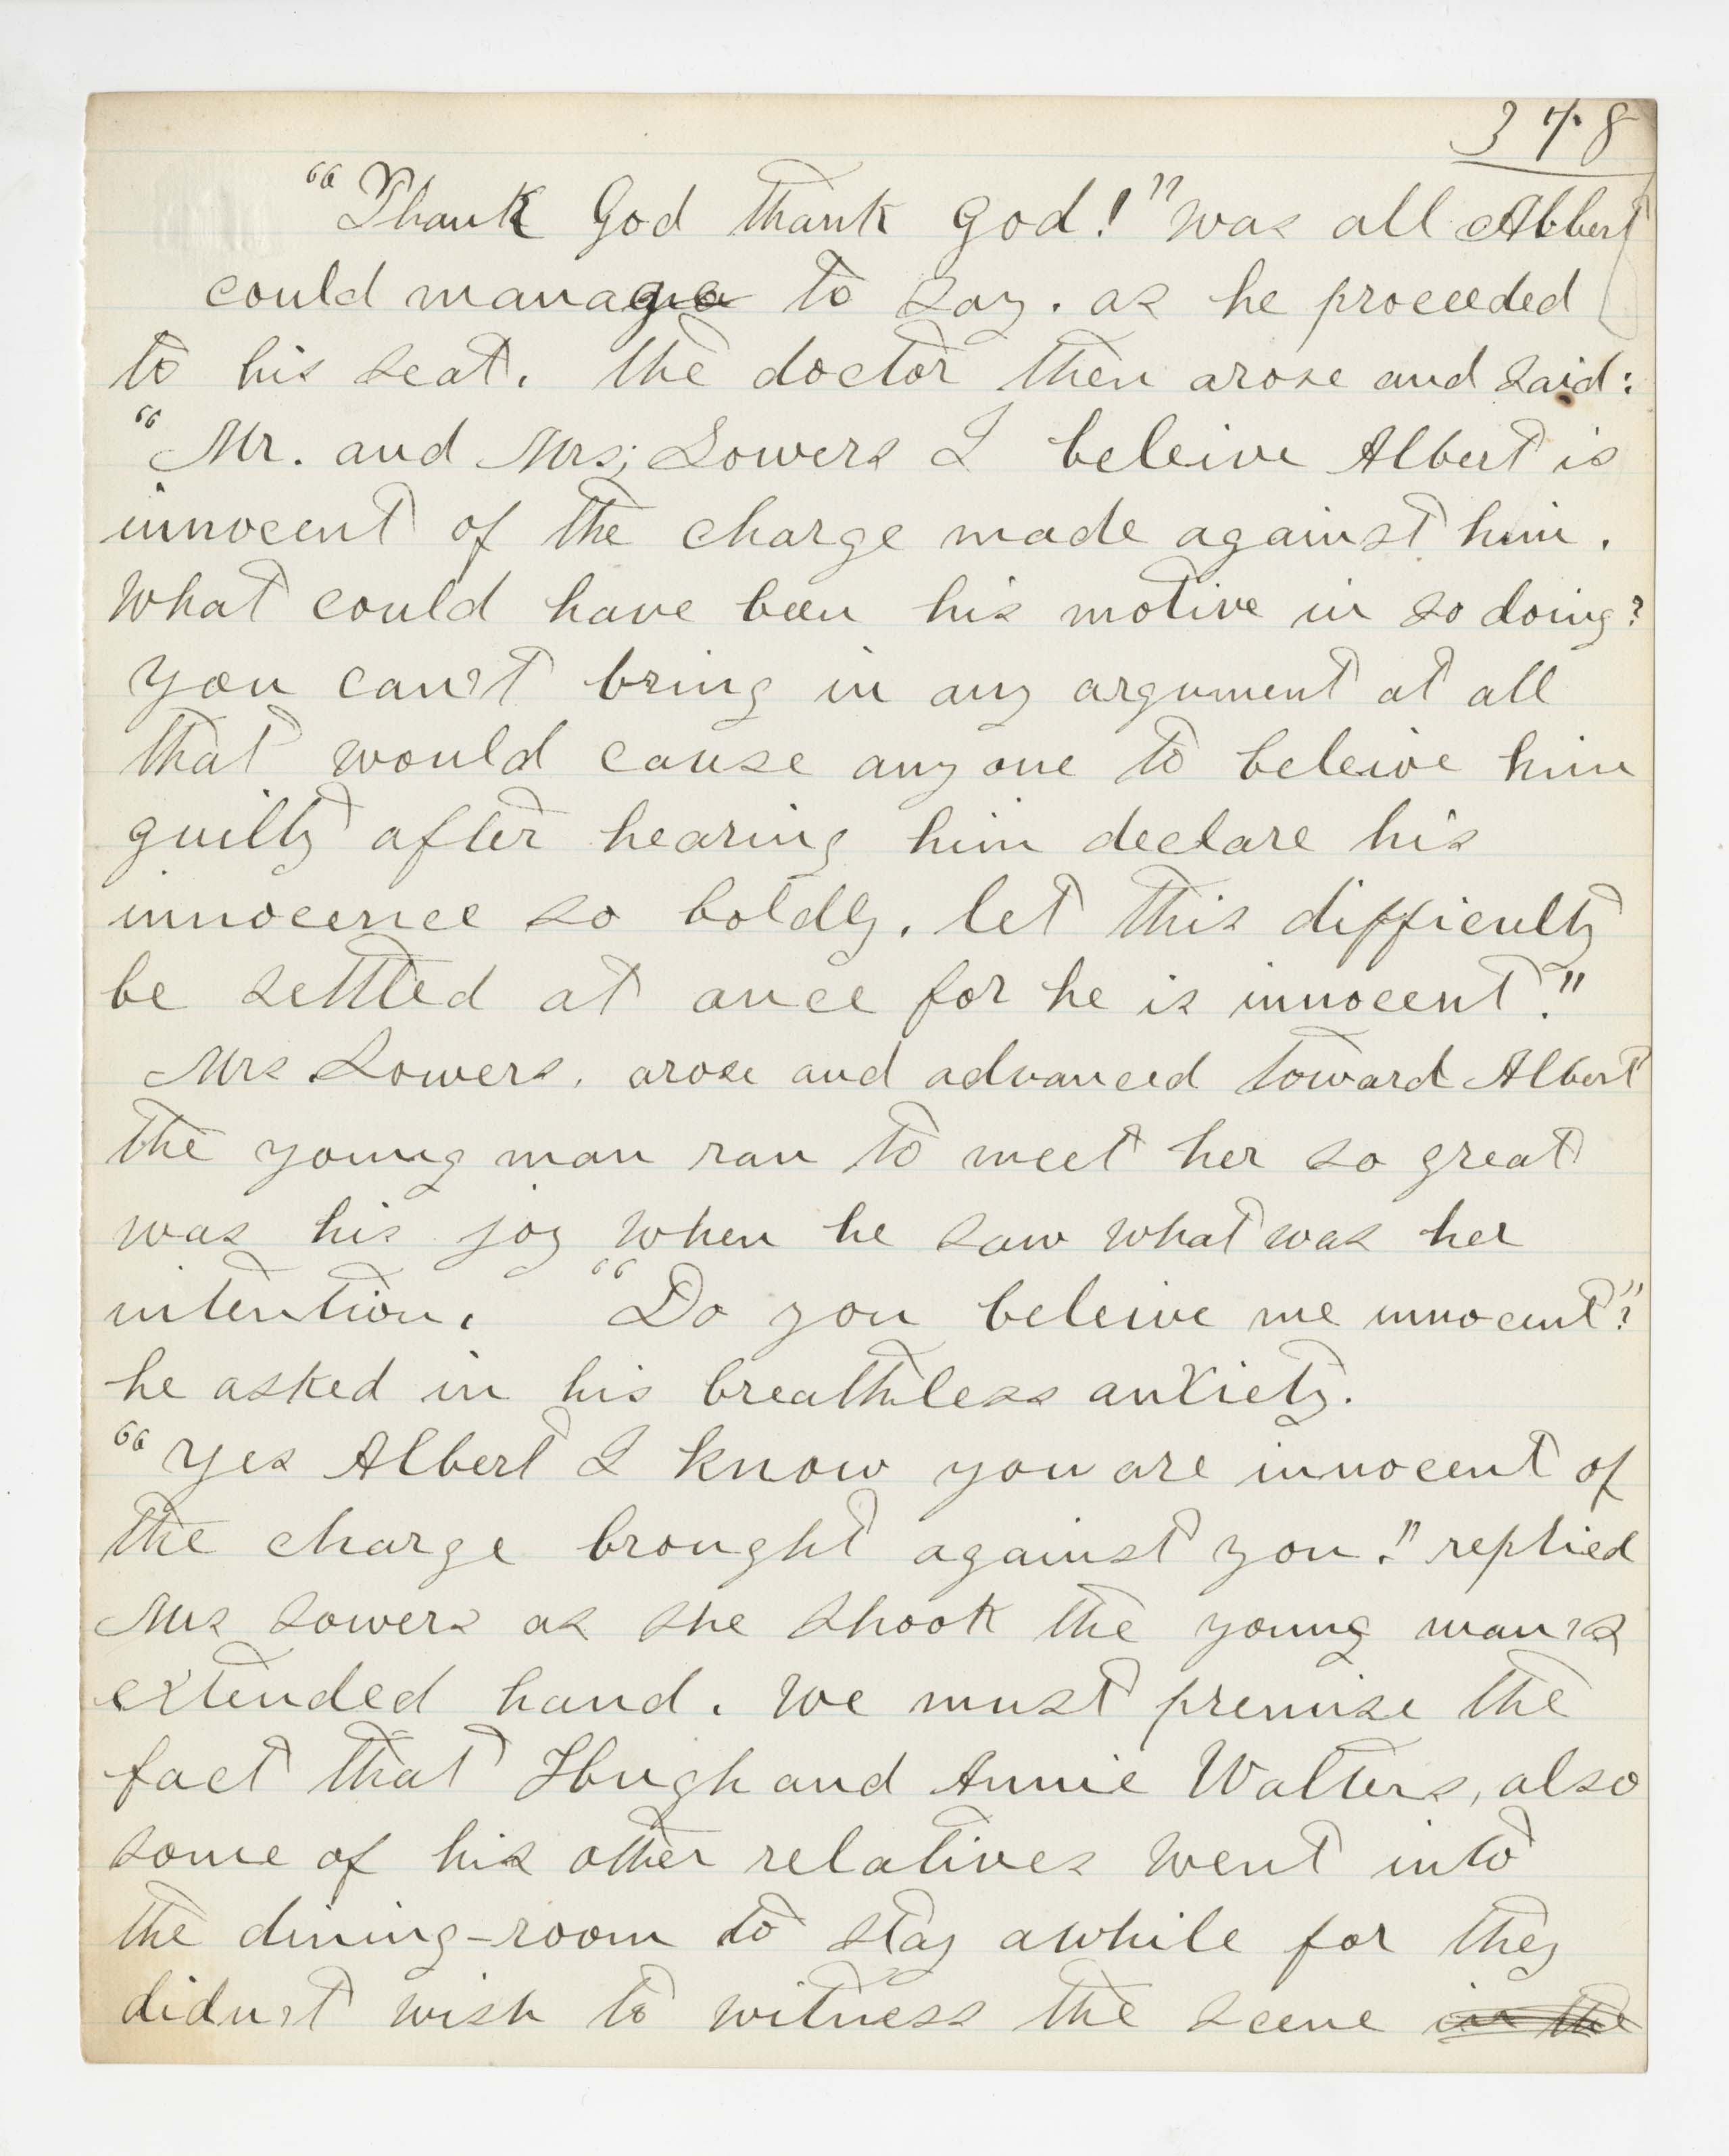 378
"Thank God thank God!" was all Albert
could manage to say. as he proceeded
to his seat. the doctor then arose and said:
"Mr. and Mrs; Sowers I beleive Albert is
innocent of the charge made against him.
What could have been his motive in so doing?
you can't bring in any argument at all
that would cause any one to beleive him
guilty after hearing him declare his
innocence so boldly. let this difficulty
be settled at once for he is innocent."
Mrs Sowers. arose and advanced toward Albert
the young man ran to meet her so great
was his joy when he saw what was her
intention. "Do you beleive me innocent"?
he asked in his breathless anxiety.
"Yes Albert I know you are innocent of
the charge brought against you." replied
Mrs Sowers as she shook the young man's
extended hand. we must premise the
fact that Hugh and Annie Walters, also
some of his other relatives went into
the dining-room to stay awhile for they
didn't wish to witness the scene in the